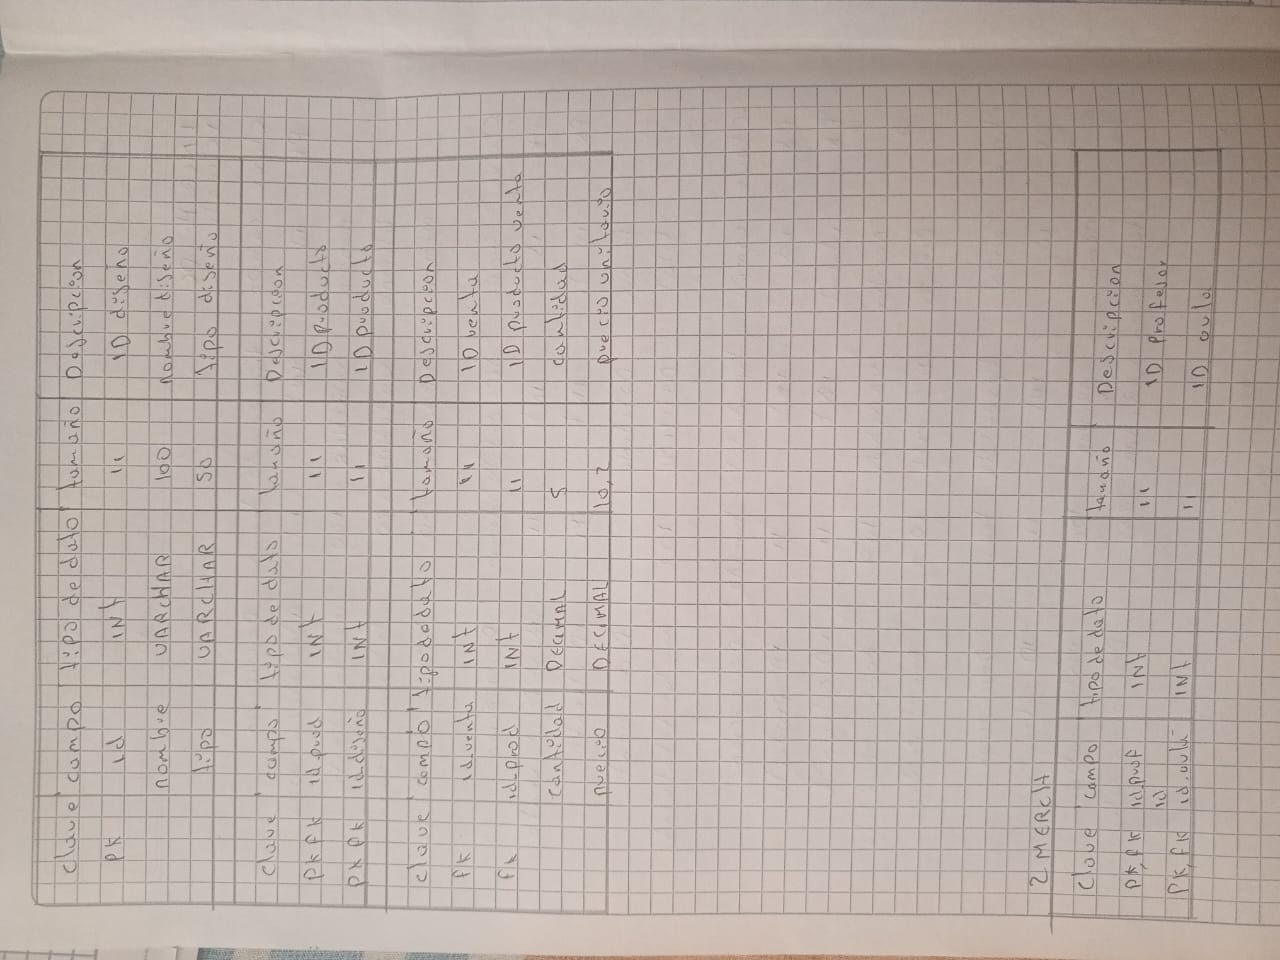 Clave campo tipo de dato tamaño Descripcion
PK id INt 11 ID diseño
nombre VARCHAR 100 nombre diseño
tipo VARCHAR 50 tipo diseño
Clave campo tipo de dato tamaño Descripcion
PK FK id_prod INt 11 ID producto
PK FK id_diseño INt 11 ID producto
Clave campo tipo de dato tamaño Descripcion
FK id_venta INt 11 ID venta
FK id_prod INt 11 ID producto venta
cantidad DECIMAL 5 cantidad
precio DECIMAL 10,2 precio unitario
2 MERCH
Clave campo tipo de dato tamaño Descripcion
PK,FK id_prof INt 11 ID profesor
id
PK,FK id_aula INt 11 ID aula